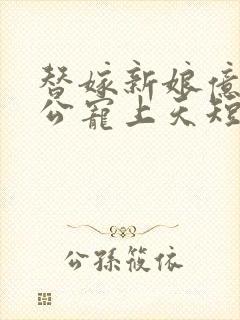 替嫁新娘億
公寵上天短
公孫筱依